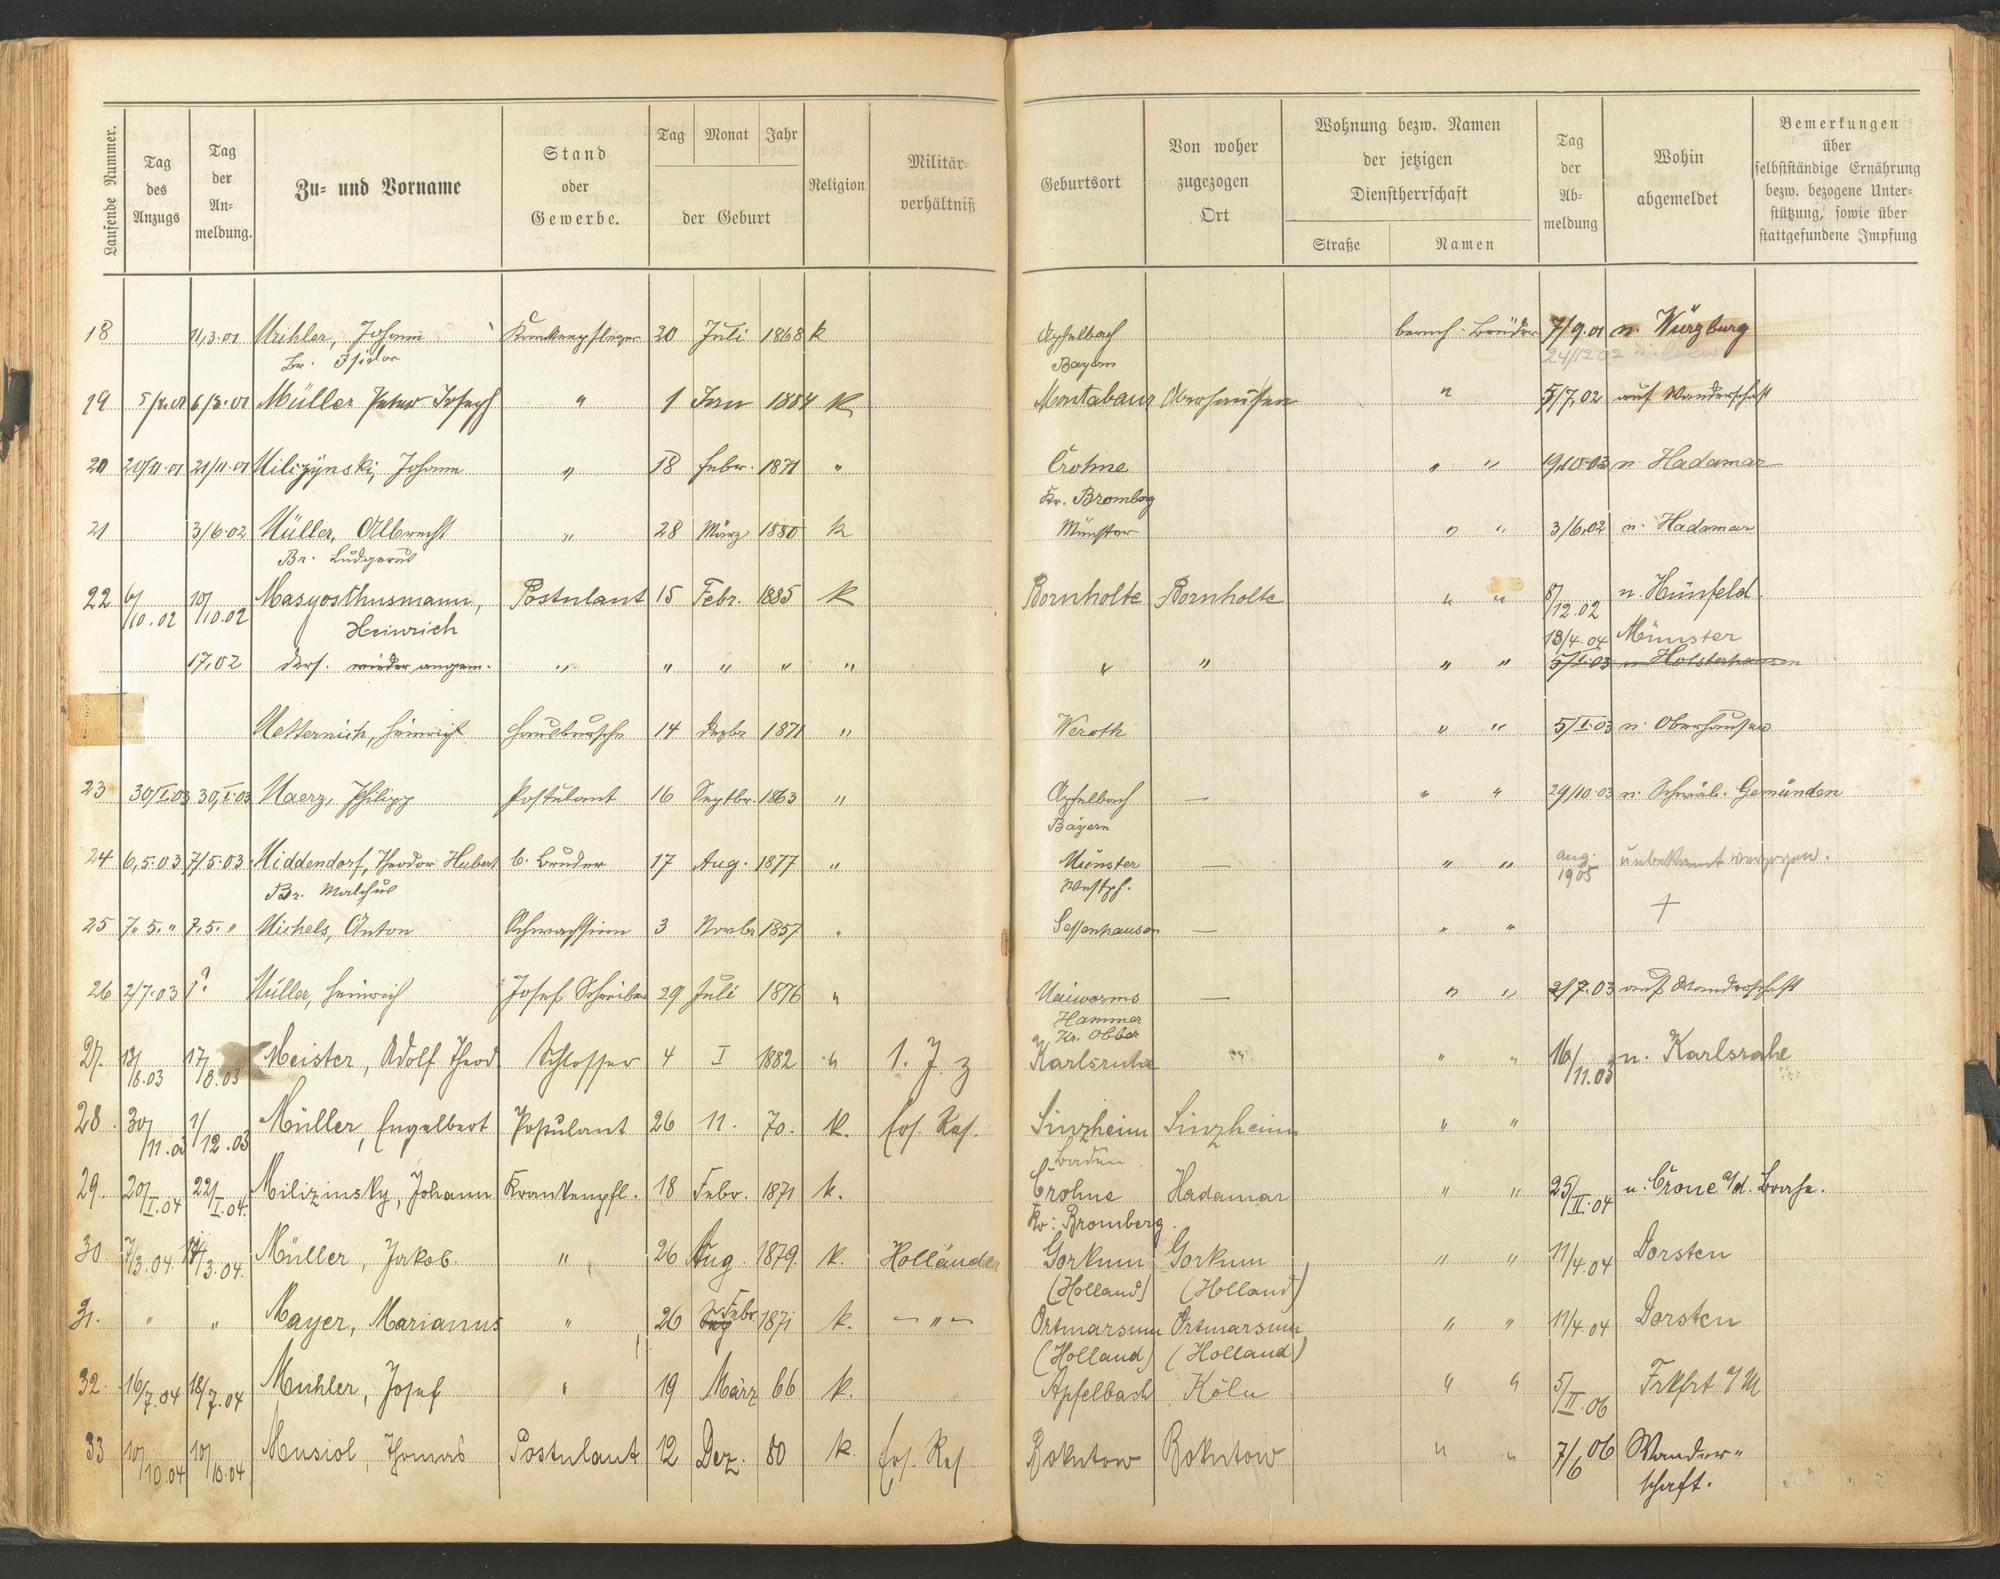 Laufende Nummer.
Tag des Anzugs
Tag der An-meldung.
Zu= und Vorname
Stand oder Gewerbe.
Tag Monat Jahr
der Geburt
Religion
Militär-verhältniß
Geburtsort
Von woher zugezogen Ort
Wohnung bezw. Namen der jetzigen Dienstherrschaft
Straße Namen
Tag der Ab-meldung
Wohin abgemeldet
Bemerkungen über selbstständige Ernährung bezw. bezogene Unter-stützung, sowie über stattgefundene Impfung
18 11,3.01 Muhler, Johann Krankenpfleger 20 Juli 1868 k Apfelbach barmh. Brüder 7/9.01 n. Würzburg
Br. Isidor Bayern 24/12 02
19 6/2.01 Müller Peter Joseph " 1 Jan 1884 k Montabaur Oberhausen " 5/7.02 auf Wanderschaft
20 20/11.01 21/11.01 Milizÿnski, Johann " 18 Febr. 1871 " Crohne " " 19.10.03 n. Hadamar
Kr. Bromberg
21 3/6.02 Müller, Albrecht " 28 März 1880 k Münster " " 3/6.02 n. Hadamar
Br. Ludgerus
22 6/10.02 10/10.02 Masyosthusmann, Postulant 15 Febr. 1885 k Bornholte Bornholte " " 8/12.02 n. Hünfeld
Heinrich 18/4.04 Münster
17,02 ders. wieder angem. " " " " " " " " " 5/I.03 n. Holsterhausen
Metternich, Heinrich Hausbursche 14 Dezbr 1871 " Weroth " " 5/I.03 n. Oberhausen
23 30/I.03 30/I.03 Maerz, Philipp Postulant 16 Septbr. 1863 " Apfelbach — " " 29/10.03 n. Schwäb. Gemünden
Bayern
24 6,5.03 7/5.03 Middendorf, Theodor Hubert b. Bruder 17 Aug. 1877 " Münster — " " aug. 1905 unbekannt verzogen.
Br. Malchus Westph.
25 7. 5. " 7.5. " Michels, Anton Schwachsinn 3 Novbr 1857 " Sessenhausen — " " +
26 2/7.03 ? Müller, Heinrich Josef Schreiber 29 Juli 1876 " — " " 2/7.03 auf Wanderschaft
Hammer
27. 13/8.03 17/8.03 Meister, Adolf Theod Schlosser 4 I 1882 " 1. J. z Karlsruhe " " 16/11.03 n. Karlsruhe
28. 30/11.03 1/12.03 Müller, Engelbert Postulant 26 11. 70. k. Ers. Res. Sinzheim Sinzheim " "
Baden
29. 20/I.04 22/I.04. Milizinsky, Johann Krankenpfl. 18 Febr. 1871 k. Crohne Hadamar " " 25/II.04 n. Crone a/d. Brahe.
Kr: Bromberg.
30. 7/3.04. 14/3.04. Müller, Jakob. " 26 Aug. 1879. k. Holländer Gorkum Gorkum " " 11/4.04 Dorsten
(Holland) (Holland)
31. " " Mayer, Marianus " 26 Febr. 1871 k. — " — Ortmarsum Ortmarsum " " 11/4.04 Dorsten
(Holland) (Holland)
32. 16/7.04 18/7.04 Muhler, Josef " 19 März 66 k. Apfelbach Köln " " 5/II.06 Frkfrt a/M
33 10/10.04 10/10.04 Musiol, Thomas Postulant 12 Dez. 80 k. Ers. Res. Rokutow Rokutow " " 7/6 06 Wander-
schaft.